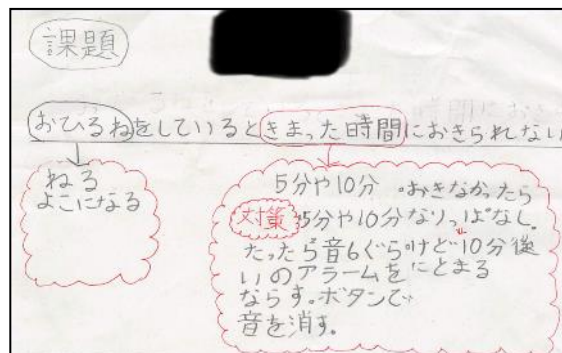 課題
おひるねをしているときまった時間におきられない
ねる
よこになる
5分や10分
対策 5分や10分
たったら音6ぐら
いのアラームを
ならす。ボタンで
音を消す。
・おきなかったら
なりっぱなし。
けど10分後
にとまる